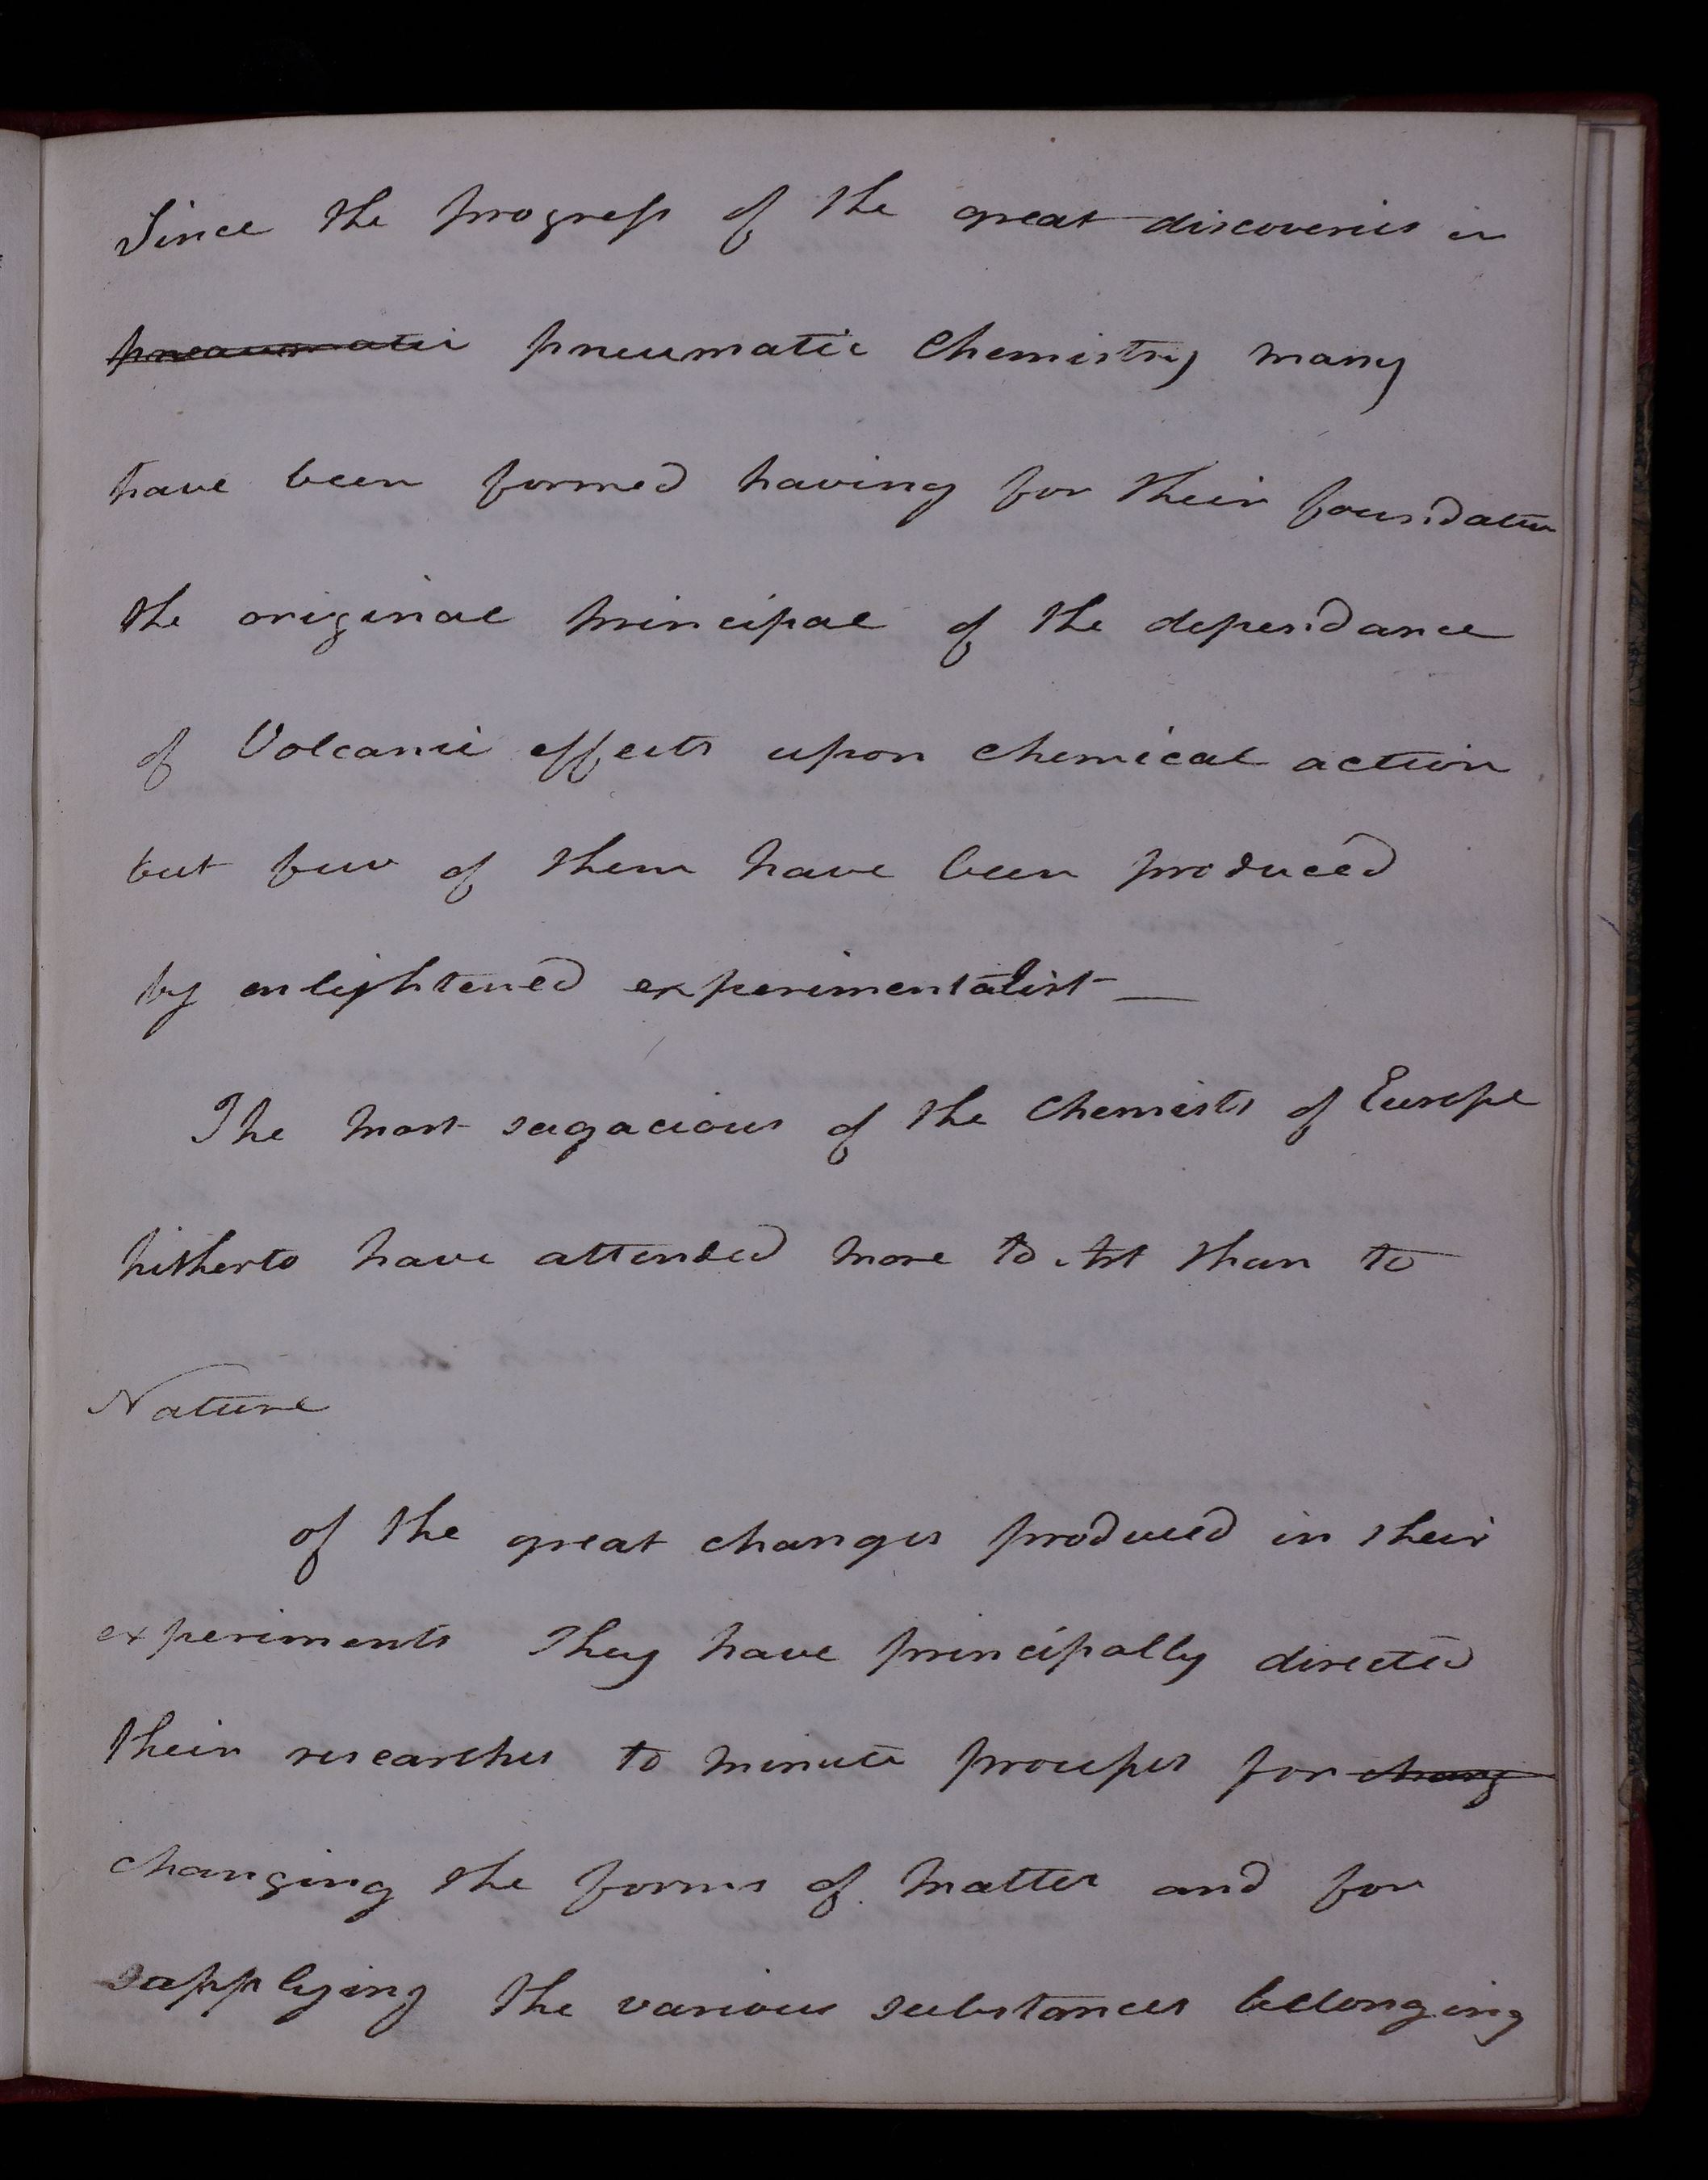 Since the progress of the great discoveries in
pneaumatic pneumatic Chemistry many
have been formed having for their foundation
the original principal of the dependance
of Volcanic effects upon chemical action
but few of them have been produced
by enlightened experimentalist —
The most sagacious of the Chemists of Europe
hitherto have attended more to Art than to
Nature
of the great changes produced in their
experiments They have principally directed
their researches to minute processes for chang
changing the forms of matter and for
sapplying the various substances belonging